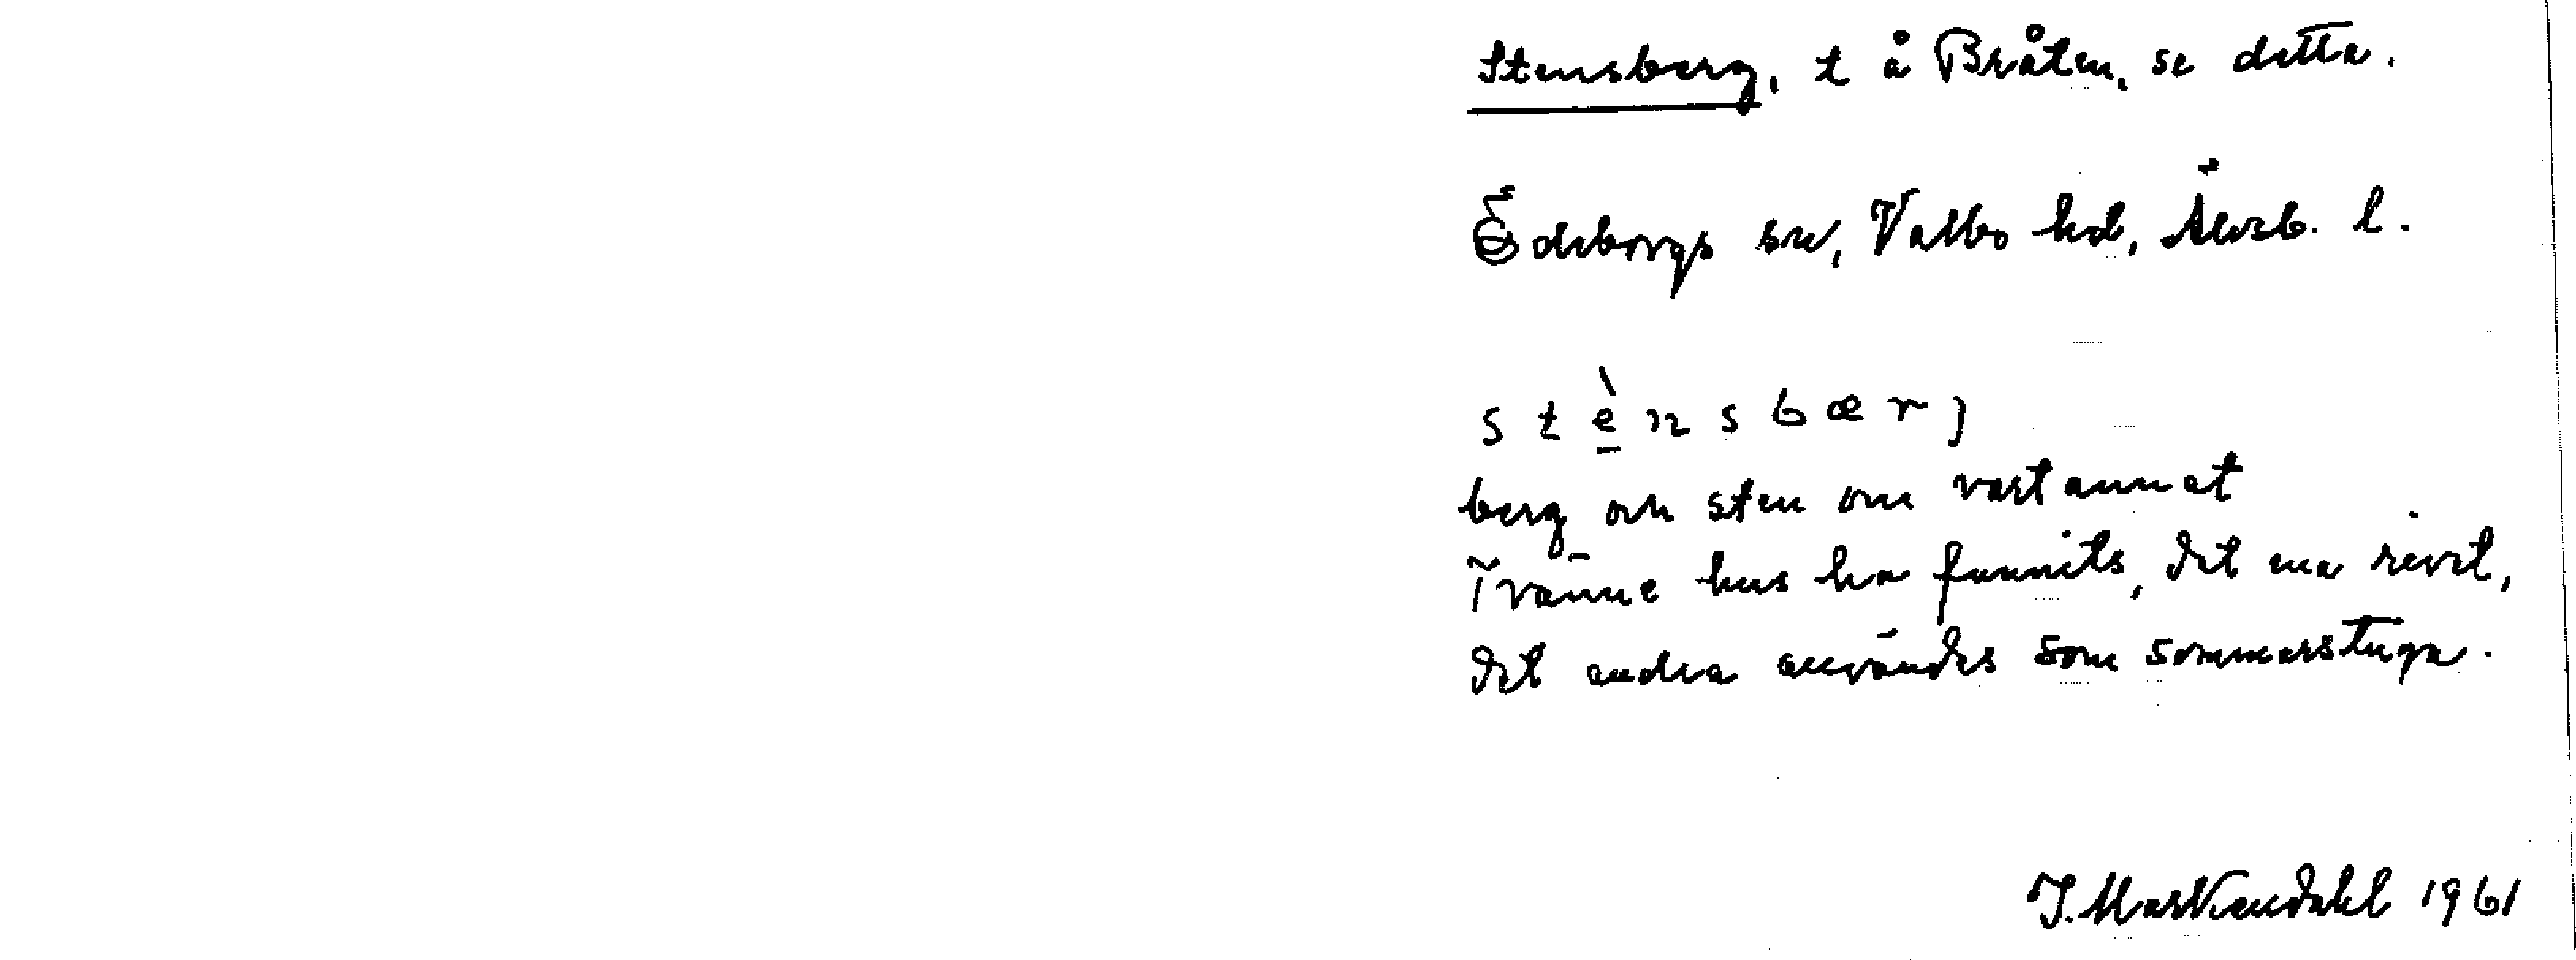 Stensberg, t å Bråten, se detta.
Ödeborgs sn, Valbo hd, Älvsb. l.
s t è n s b æ r j
berg och sten om vart annat
Tvänne hus ha funnits, det ena rivet,
det andra användes som sommarstuga.
1961